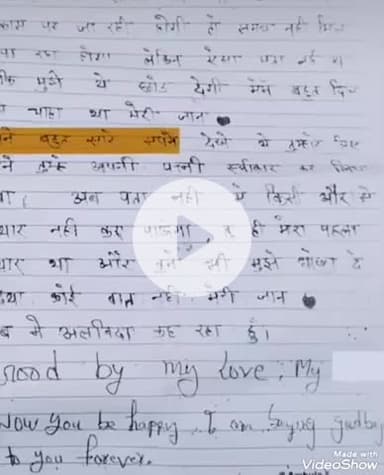 काम पर जा रही होगी हो समय नहीं मिल
पा रहा होगा लेकिन ऐसा पता नहीं था
मुझे ये छोड़ देगी मैंने बहुत दिल
चाहा था मेरी जान
ने बहुत सारे सपने देखे थे तुम्हारे लिए
ने तुम्हें अपनी पत्नी स्वीकार कर लिया
था, अब पता नहीं मैं किसी और से
प्यार नहीं करा पाऊंगा, तू ही मेरा पहला
प्यार था और तूने भी मुझे धोखा दे
दिया कोई बात नहीं मेरी जान
अब मैं अलविदा कह रहा हूँ।
Good by my Love. My
Now you be happy. I am Saying goodby
to you forever.
Made with
VideoShow